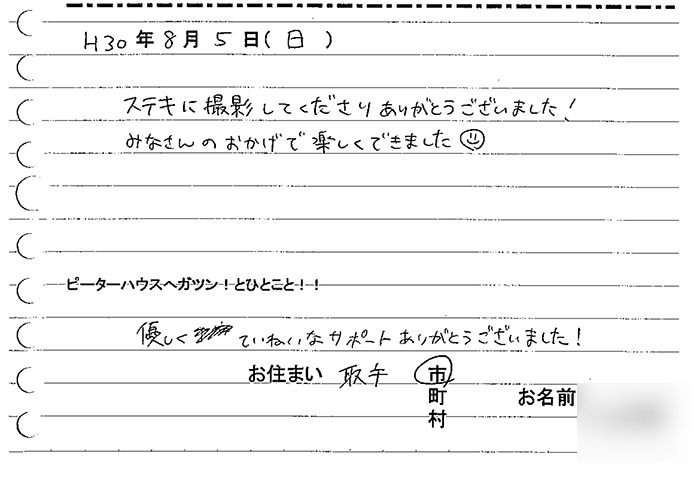 H30年8月5日(日)
ステキに撮影してくださりありがとうございました!
みなさんのおかげで楽しくできました
ピーターハウスへガツン!とひとこと!!
優しく ていねいなサポートありがとうございました!
お住まい 取手 市
町
村
お名前